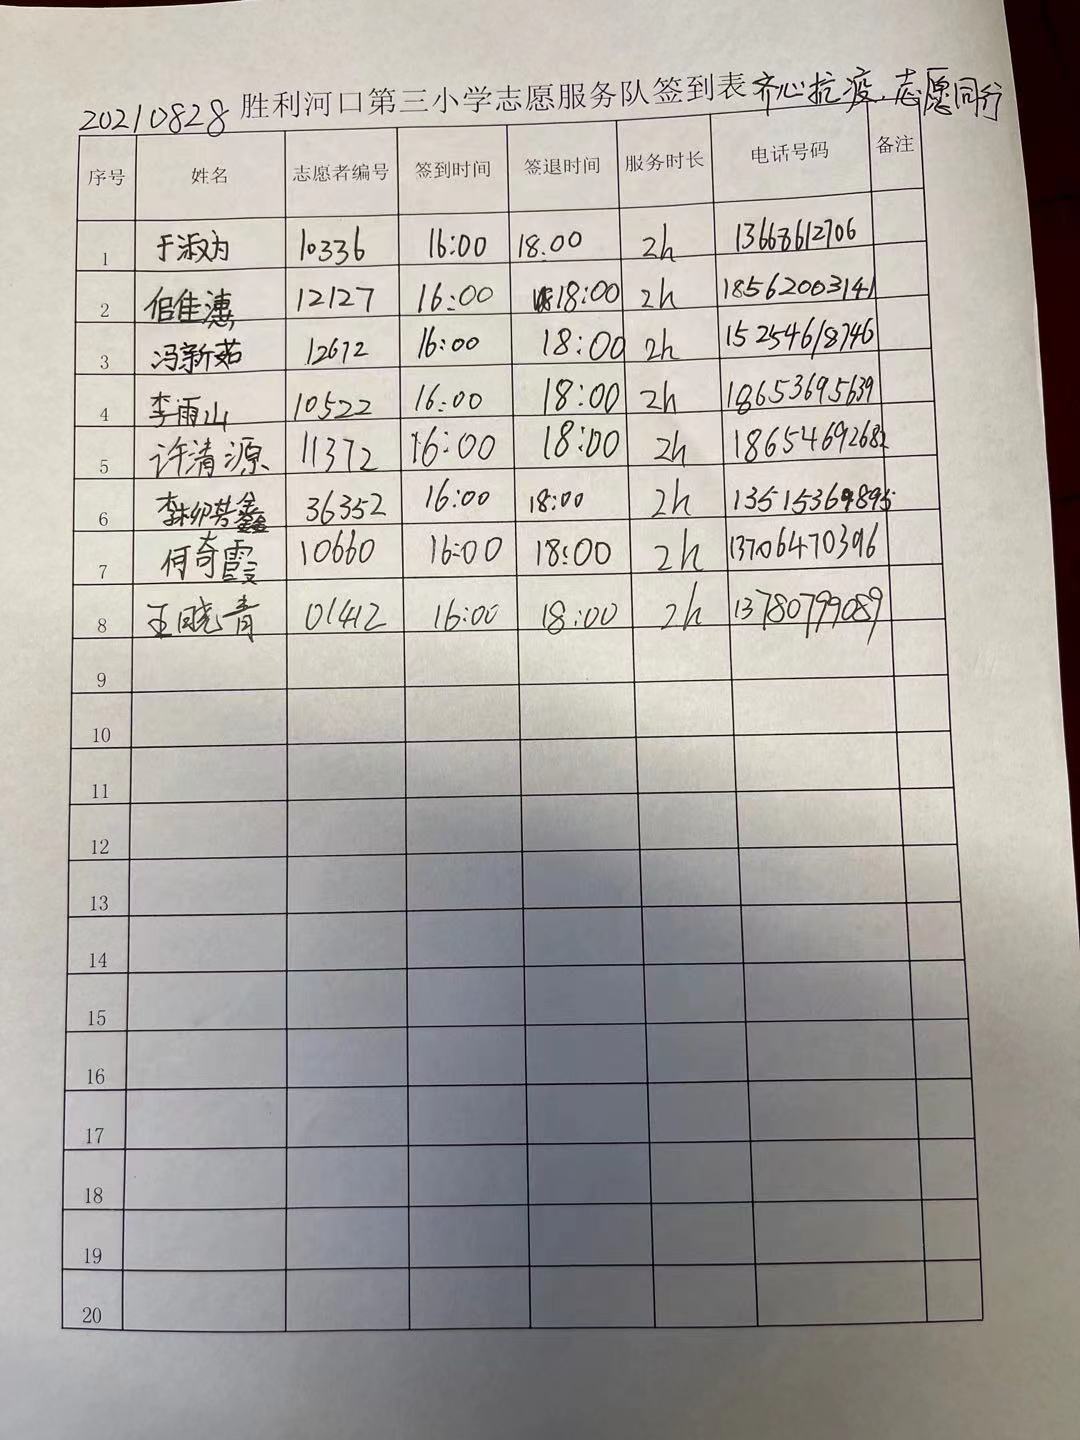 20210828 胜利河口第三小学志愿服务队签到表 齐心抗疫、志愿同行
序号 姓名 志愿者编号 签到时间 签退时间 服务时长 电话号码 备注
1 于淑为 10336 16:00 18.00 2h 13668612706
2 佀佳潓 12127 16:00 18:00 2h 18562003141
3 冯新茹 12672 16:00 18:00 2h 15254618746
4 李雨山 10522 16:00 18:00 2h 18653695639
5 许清源 11372 16:00 18:00 2h 18654692682
6 36352 16:00 18:00 2h
7 何奇霞 10660 16:00 18:00 2h 13706470396
8 王晓青 01412 16:00 18:00 2h 13780799089
9
10
11
12
13
14
15
16
17
18
19
20